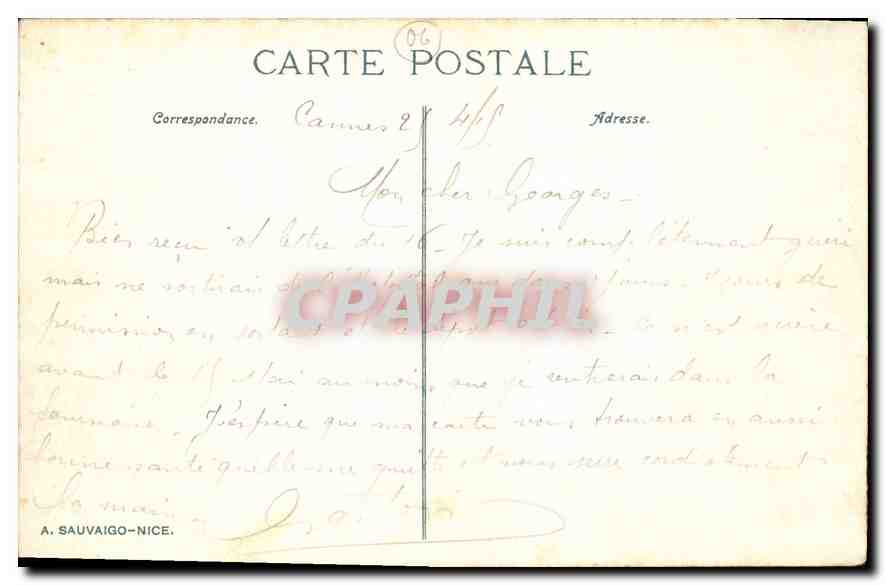 06
CARTE POSTALE
Correspondance. Cannes 25 4/15 Adresse.
Mon cher Georges -
Bien reçu lettre du 16 - Je suis complètement guéri
mais ne sortirais de jours. jours de
permission en ce n'est guère
avant le 15 Mai au moins que je rentrerai dans la
fournaise. J'espère que ma carte vous trouvera en aussi
bonne santé qu'elle me quitte et vous serre cordialement
la main.
CPAPHIL
A. SAUVAIGO-NICE.